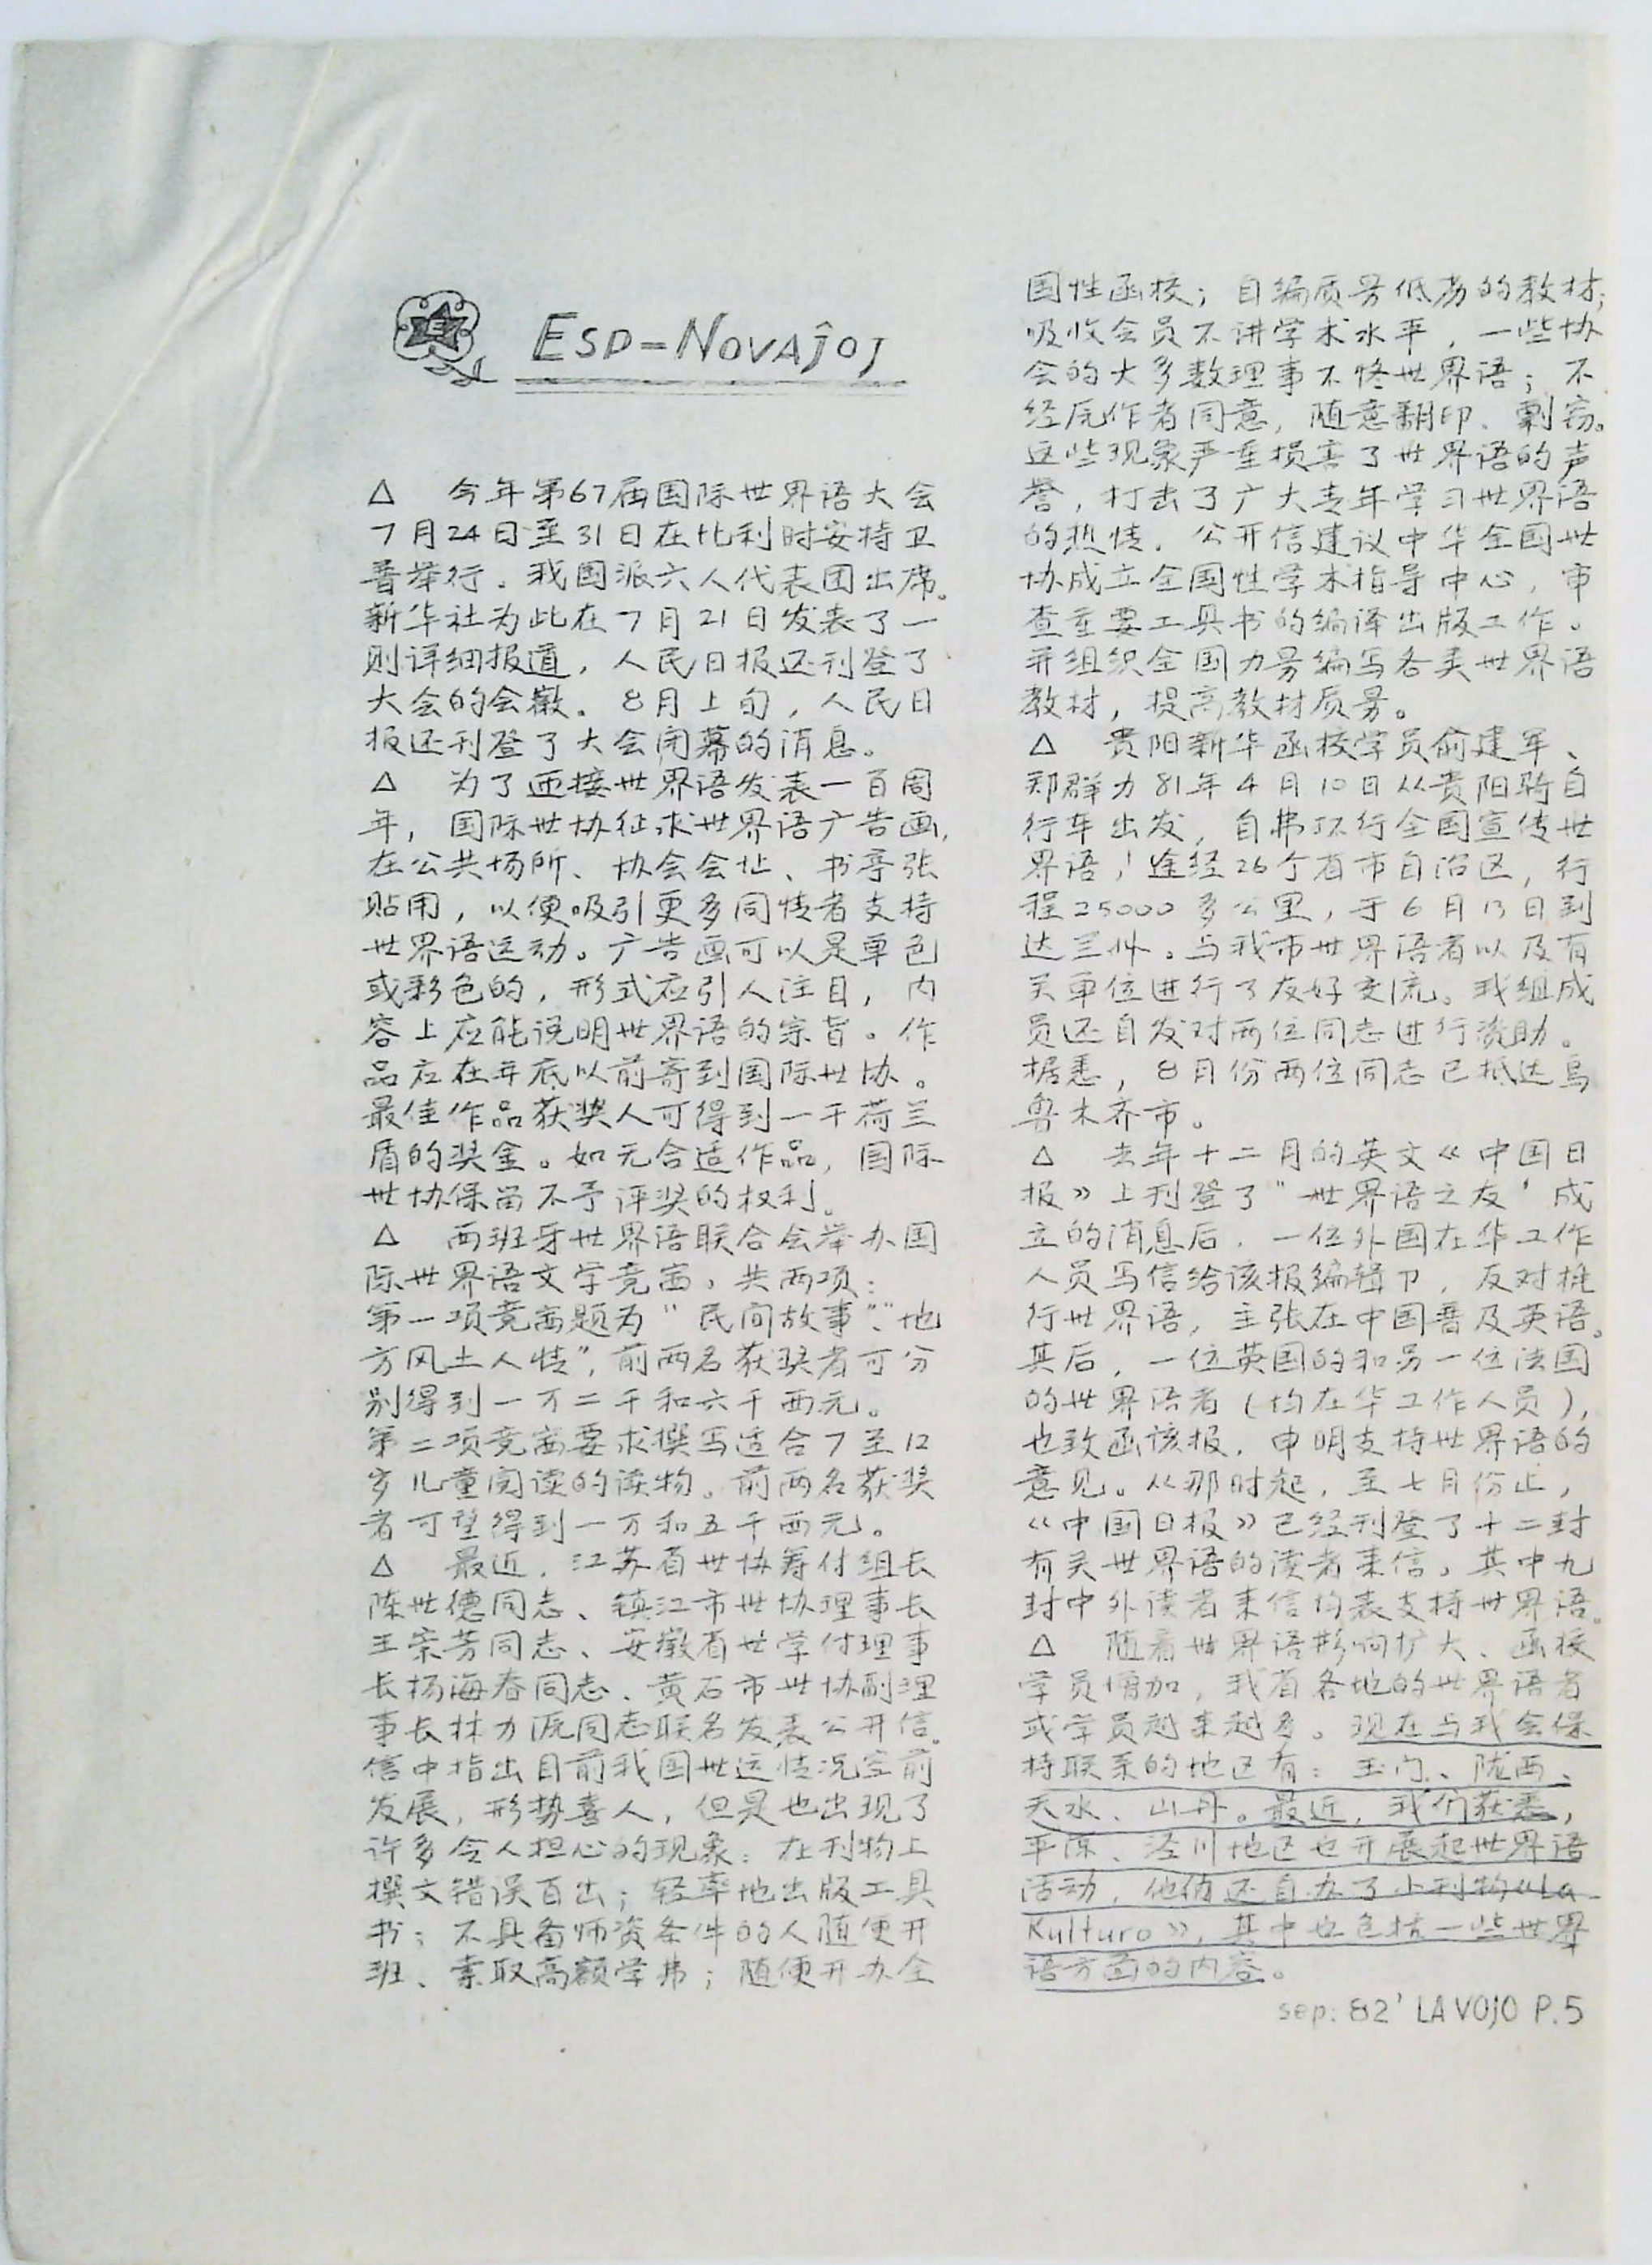 ESP=NOVAĴOJ
△ 今年第67届国际世界语大会
7月24日至31日在比利时安特卫
普举行。我国派六人代表团出席。
新华社为此在7月21日发表了一
则详细报道，人民日报还刊登了
大会的会徽。8月上旬，人民日
报还刊登了大会闭幕的消息。
△ 为了迎接世界语发表一百周
年，国际世协征求世界语广告画，
在公共场所、协会会址、书亭张
贴用，以便吸引更多同情者支持
世界语运动。广告画可以是单色
或彩色的，形式应引人注目，内
容上应能说明世界语的宗旨。作
品应在年底以前寄到国际世协。
最佳作品获奖人可得到一千荷兰
盾的奖金。如无合适作品，国际
世协保留不予评奖的权利。
△ 西班牙世界语联合会举办国
际世界语文学竞赛，共两项：
第一项竞赛题为“民间故事”、“地
方风土人情”，前两名获奖者可分
别得到一万二千和六千西元。
第二项竞赛要求撰写适合7至12
岁儿童阅读的读物。前两名获奖
者可望得到一万和五千西元。
△ 最近，江苏省世协筹付组长
陈世德同志、镇江市世协理事长
王宗芳同志、安徽省世学付理事
长杨海春同志、黄石市世协副理
事长林力源同志联名发表公开信。
信中指出目前我国世运情况空前
发展，形势喜人，但是也出现了
许多令人担心的现象：在刊物上
撰文错误百出；轻率地出版工具
书；不具备师资条件的人随便开
班、索取高额学弗；随便开办全
国性函校；自编质量低劣的教材；
吸收会员不讲学术水平，一些协
会的大多数理事不佟世界语；不
经原作者同意，随意翻印、剽窃。
这些现象严重损害了世界语的声
誉，打击了广大青年学习世界语
的热情。公开信建议中华全国世
协成立全国性学术指导中心，审
查重要工具书的编译出版工作。
并组织全国力量编写各类世界语
教材，提高教材质量。
△ 贵阳新华函校学员俞建军、
郑群力81年4月10日从贵阳骑自
行车出发，自弗环行全国宣传世
界语！途经26个省市自治区，行
程25000多公里，于6月13日到
达兰州。与我市世界语者以及有
关单位进行了友好交流。我组成
员还自发对两位同志进行资助。
据悉，8月份两位同志已抵达乌
鲁木齐市。
△ 去年十二月的英文《中国日
报》上刊登了“世界语之友'成
立的消息后，一位外国在华工作
人员写信给该报编辑卩，反对推
行世界语，主张在中国普及英语。
其后，一位英国的和另一位法国
的世界语者(均在华工作人员)，
也致函该报，申明支持世界语的
意见。从那时起，至七月份止，
《中国日报》已经刊登了十二封
有关世界语的读者来信。其中九
封中外读者来信均表支持世界语。
△ 随着世界语影响扩大、函校
学员增加，我省各地的世界语者
或学员越来越多。现在与我会保
持联系的地区有：玉门、陇西、
天水、山丹。最近，我们获悉，
平凉、泾川地区也开展起世界语
活动，他俩还自办了小刊物《La
Kulturo》，其中也包括一些世界
语方面的内容。
sep: 82' LA VOJO P.5